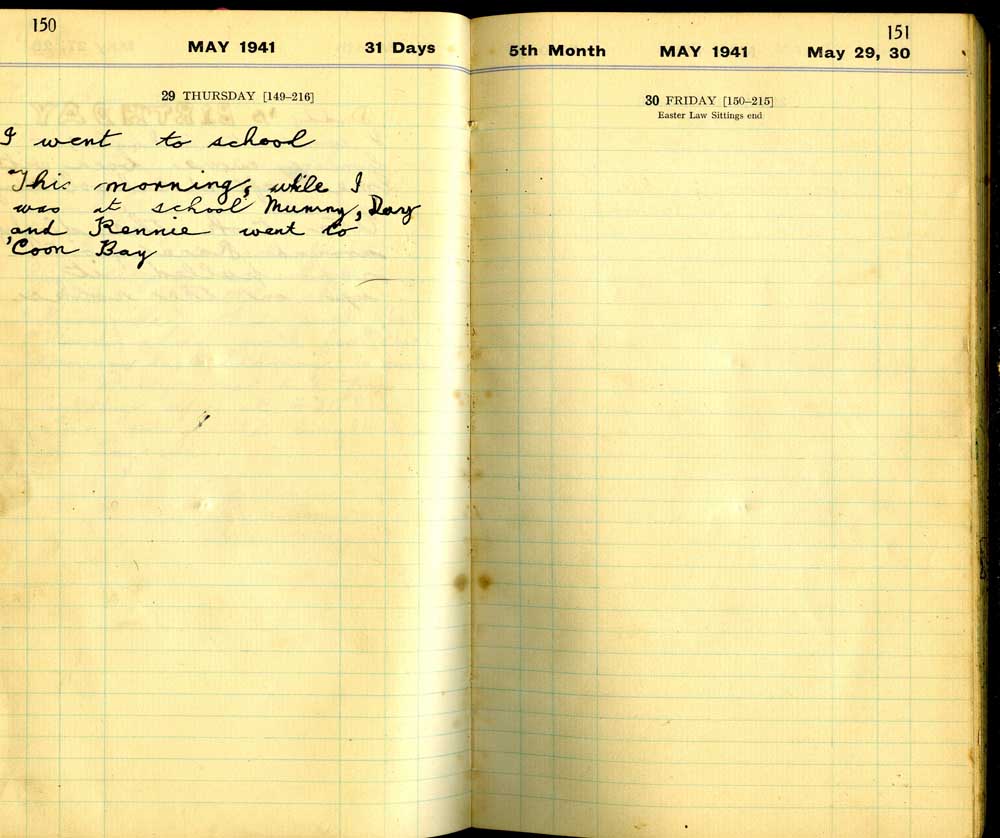 150
MAY 1941 31 Days
29 THURSDAY [149–216]
I went to school
This morning, while I
was at school Mummy, Day
and Rennie went to
'Coon Bay
151
5th Month MAY 1941 May 29, 30
30 FRIDAY [150–215]
Easter Law Sittings end